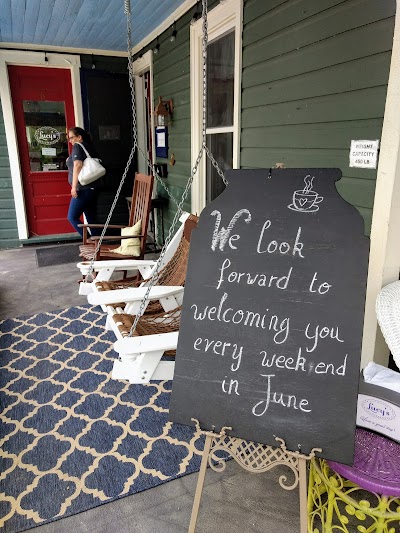 Lucy's
WEIGHT
CAPACITY
450 LB
We look
forward to
welcoming you
every weekend
in June
Lucy's